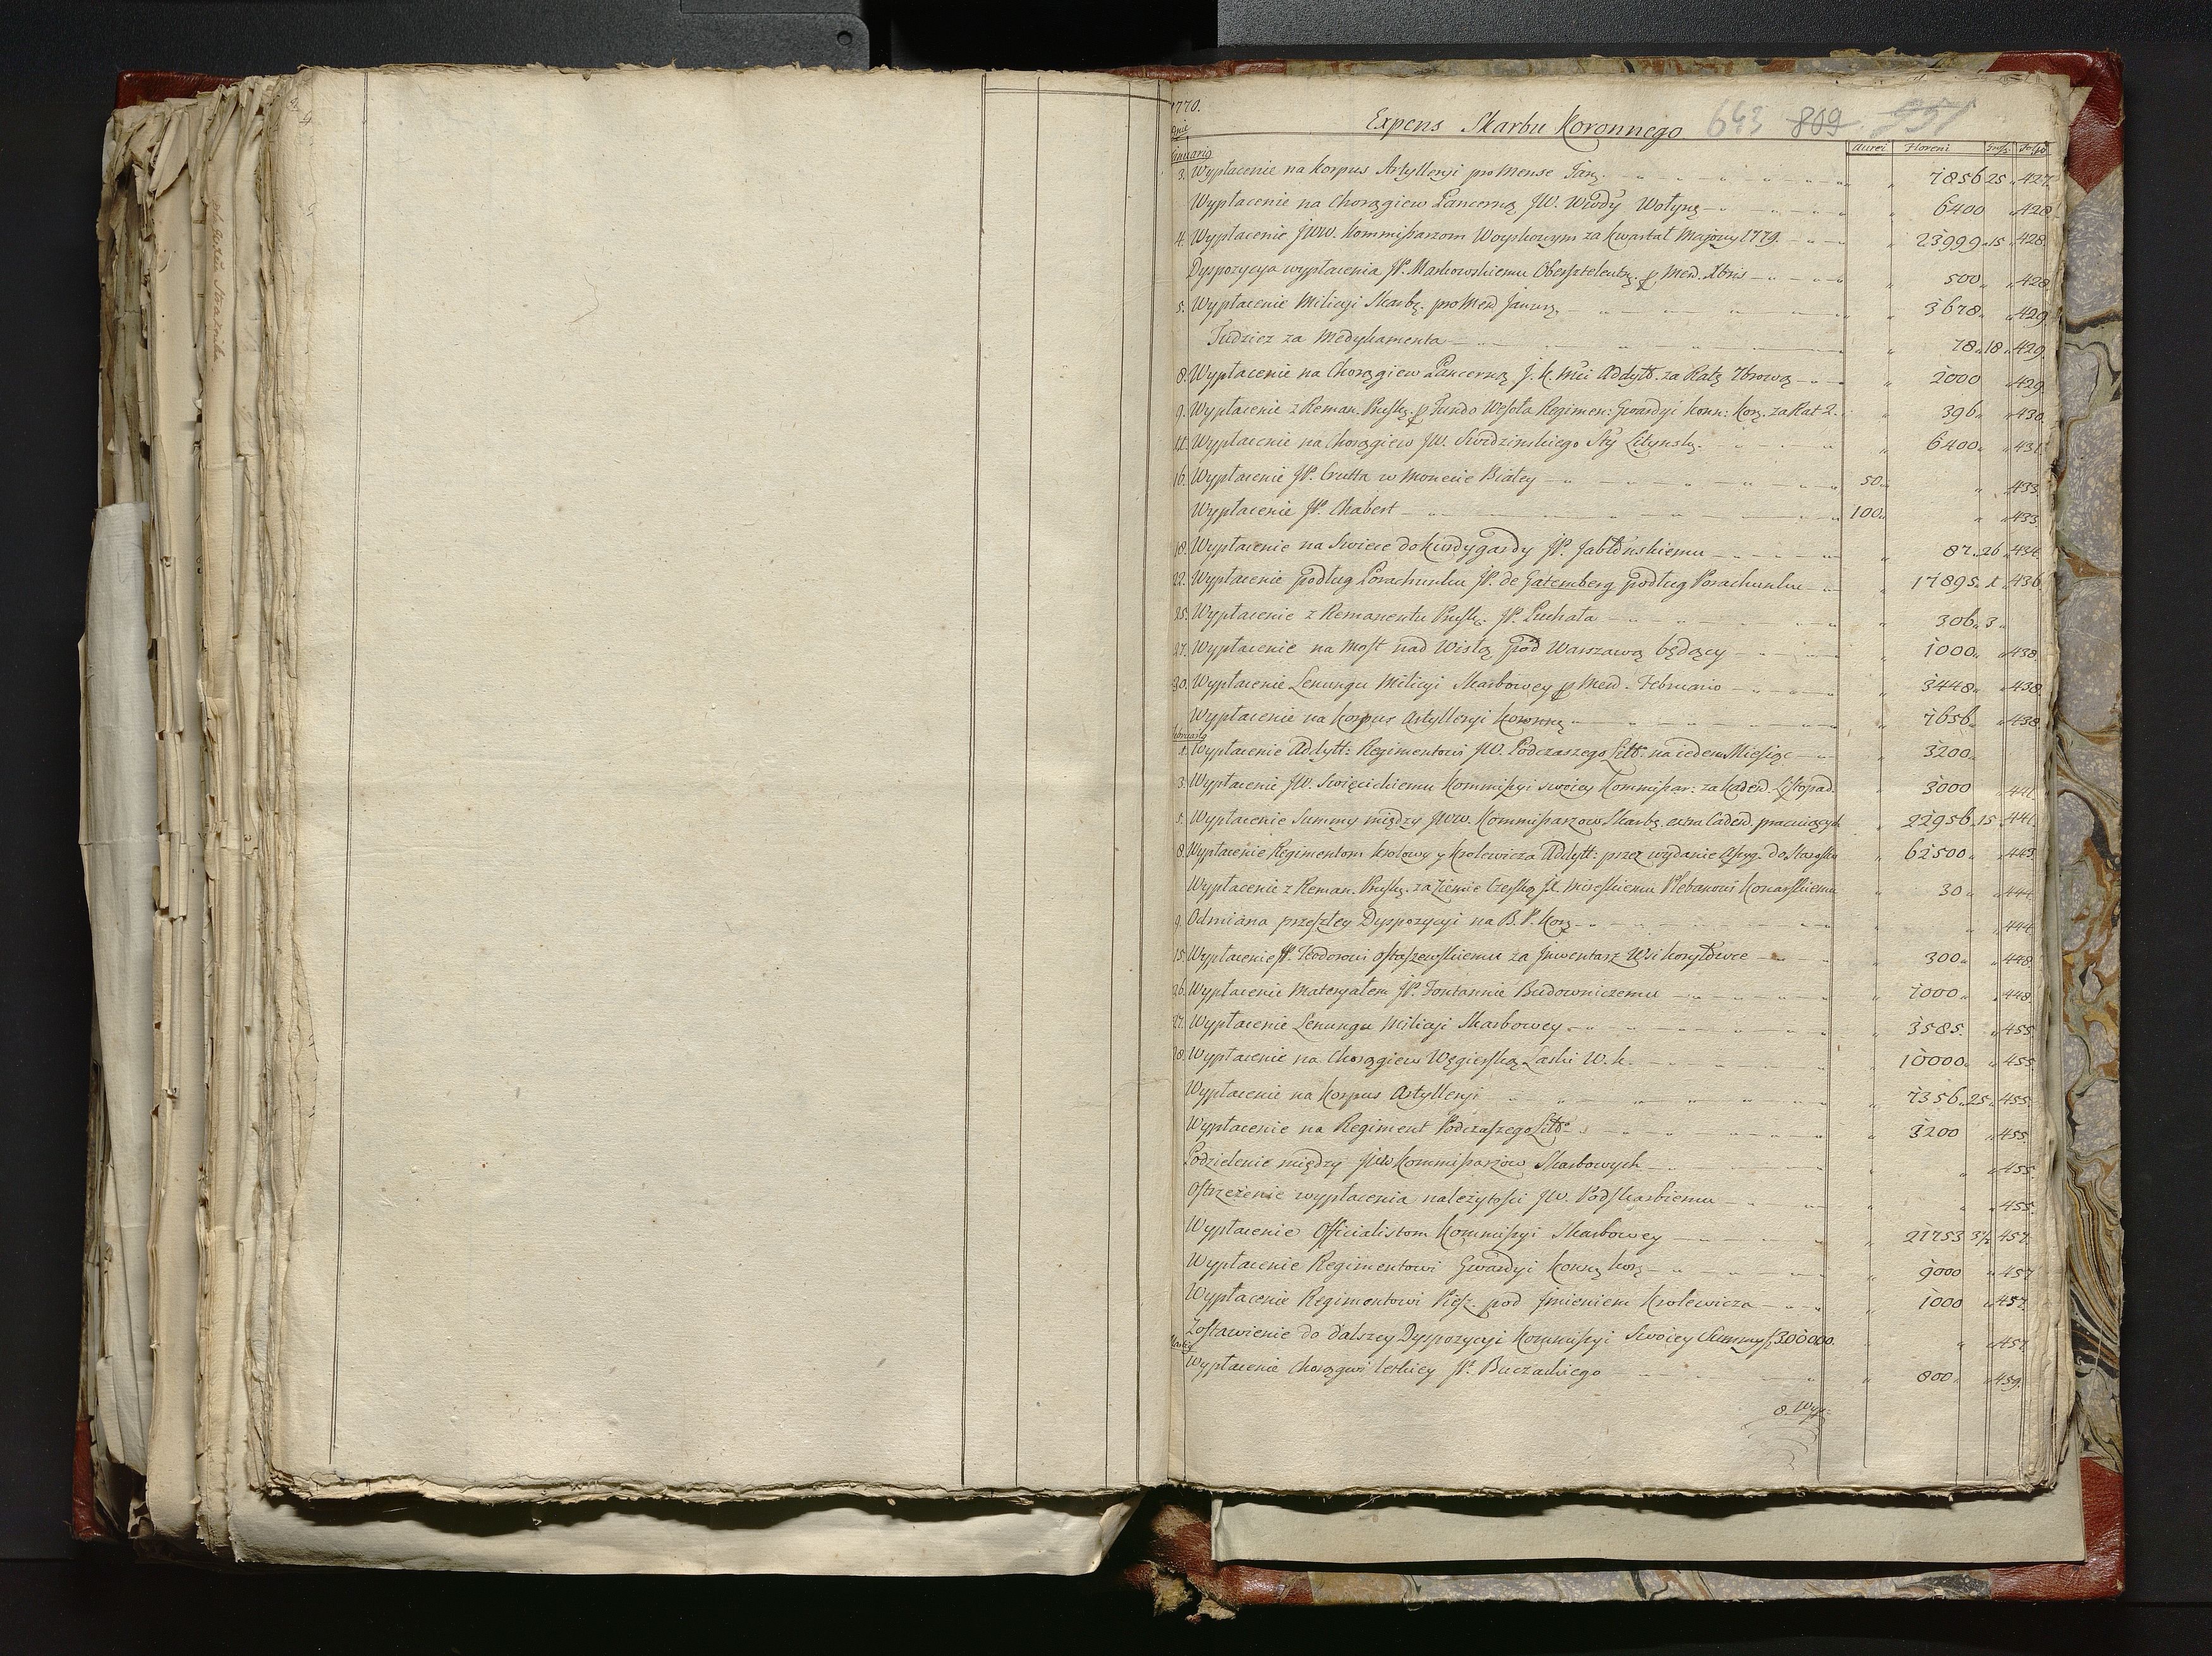 1770.
Expens Skarbu Koronnego 643 809
Dnie Aurei Floreni Grosz. Folio
Januarig
3. Wypłacenie na korpus Artylleryi pro Mense Janŗ. 7856 25 427.
Wypłacenie na Chorągiew Pancerną JW. Wdody Wołyną 6400 428.
4. Wypłacenie JWW. Kommissarzom Woyskowym za kwartał Majowy 1779. 23999 15 428.
Dyspozycya wypłacenia JP. Markowskiemu Oberszteleutņ. p Men. Xbris 500 428.
5. Wypłacenie Milicyi Skarbę. pro Men. Januarŗ. 3678 429.
Tudziez za Medykamenta 78 18 429.
8. Wypłacenie na Chorągiew Pancerną J. K. Mci Addytt. za Ratę 7brową 2000 429.
9. Wypłacenie z Reman. Prusk. p Fundo Wesoła Regimen: Gwardyi Konn: Koŗ. za Rat 2. 396 430.
11. Wypłacenie na Chorągiew JW. Swidzinskiego Sty Lityńsk. 6400 431.
16. Wypłacenie JP. Crutta w Monecie Białey 50 433.
Wypłacenie JP. Chabert 100 433.
18. Wypłacenie na Swiece do Kurdygardy JP. Jabłońskiemu 87 26 434.
22. Wypłacenie podług Porachunku JP. de Gatemberg podług Porachunku 17895 1 436.
25. Wypłacenie z Remanentu Prusk. JP. Puchała 306 3
27. Wypłacenie na Most nad Wisłą pod Warszawą będący 1000 438.
30. Wypłacenie Lenungu Milicyi Skarbowey p Men. Februario 3448 438.
Wypłacenie na korpus Artylleryi Koronną 7656 438.
Februarig
1. Wypłacenie Addytt: Regimentowi JW. Podczaszego Litto. na ieden Miesiąc 3200
3. Wypłacenie JW. Swięcickiemu Kommissyi swoiey Kommissar: za Kaden. Listopad. 3000 441.
5. Wypłacenie Summy między JWW. Kommissarzow Skarbę. extra Caden. pracuiących 22956 15 441.
8. Wypłacenie Regimentom Krolowy y Krolewicza Addytt: przez wydanie Assyg. do Starostw 62500 443.
Wypłacenie z Reman. Prusk. za Ziemie Czerską JX. Mireckiemu Plebanowi Konarskiemu 30 444.
9. Odmiana przeszłey Dyspozycyi na B. P. Koŗ. 444.
15. Wypłacenie JP. Teodorowi Ostaszewskiemu za Jnwentarz Wsi Korytowce 300 448.
26. Wypłacenie Materyałem JP. Fontannie Budowniczemu 1000 448.
27. Wypłacenie Lenungu Milicyi Skarbowey 3585 455.
28. Wypłacenie na Chorągiew Węgierską Laski W. K. 10000 455.
Wypłacenie na Korpus Artylleryi 7356 25 455.
Wypłacenie na Regiment Podczaszego Litto 3200 455.
Podzielenie między JWW Kommissarzow Skarbowych 455.
Ostrzeżenie wypłacenia należytości JW. Podskarbiemu 455.
Wypłacenie Officialistom Kommissyi Skarbowey 21753 3½ 457.
Wypłacenie Regimentowi Gwardyi Konną Koŗ. 9000 457
Wypłacenie Regimentowi Piesz. pod Jmieniem Krolewicza 1000 457.
Zostawienie do dalszey Dyspozycyi Kommissyi Swoiey Summy f 300000. 457
Martij
Wypłacenie Chorągwi lekkiey JP. Buczackiego 800 459.
8. Wyp: